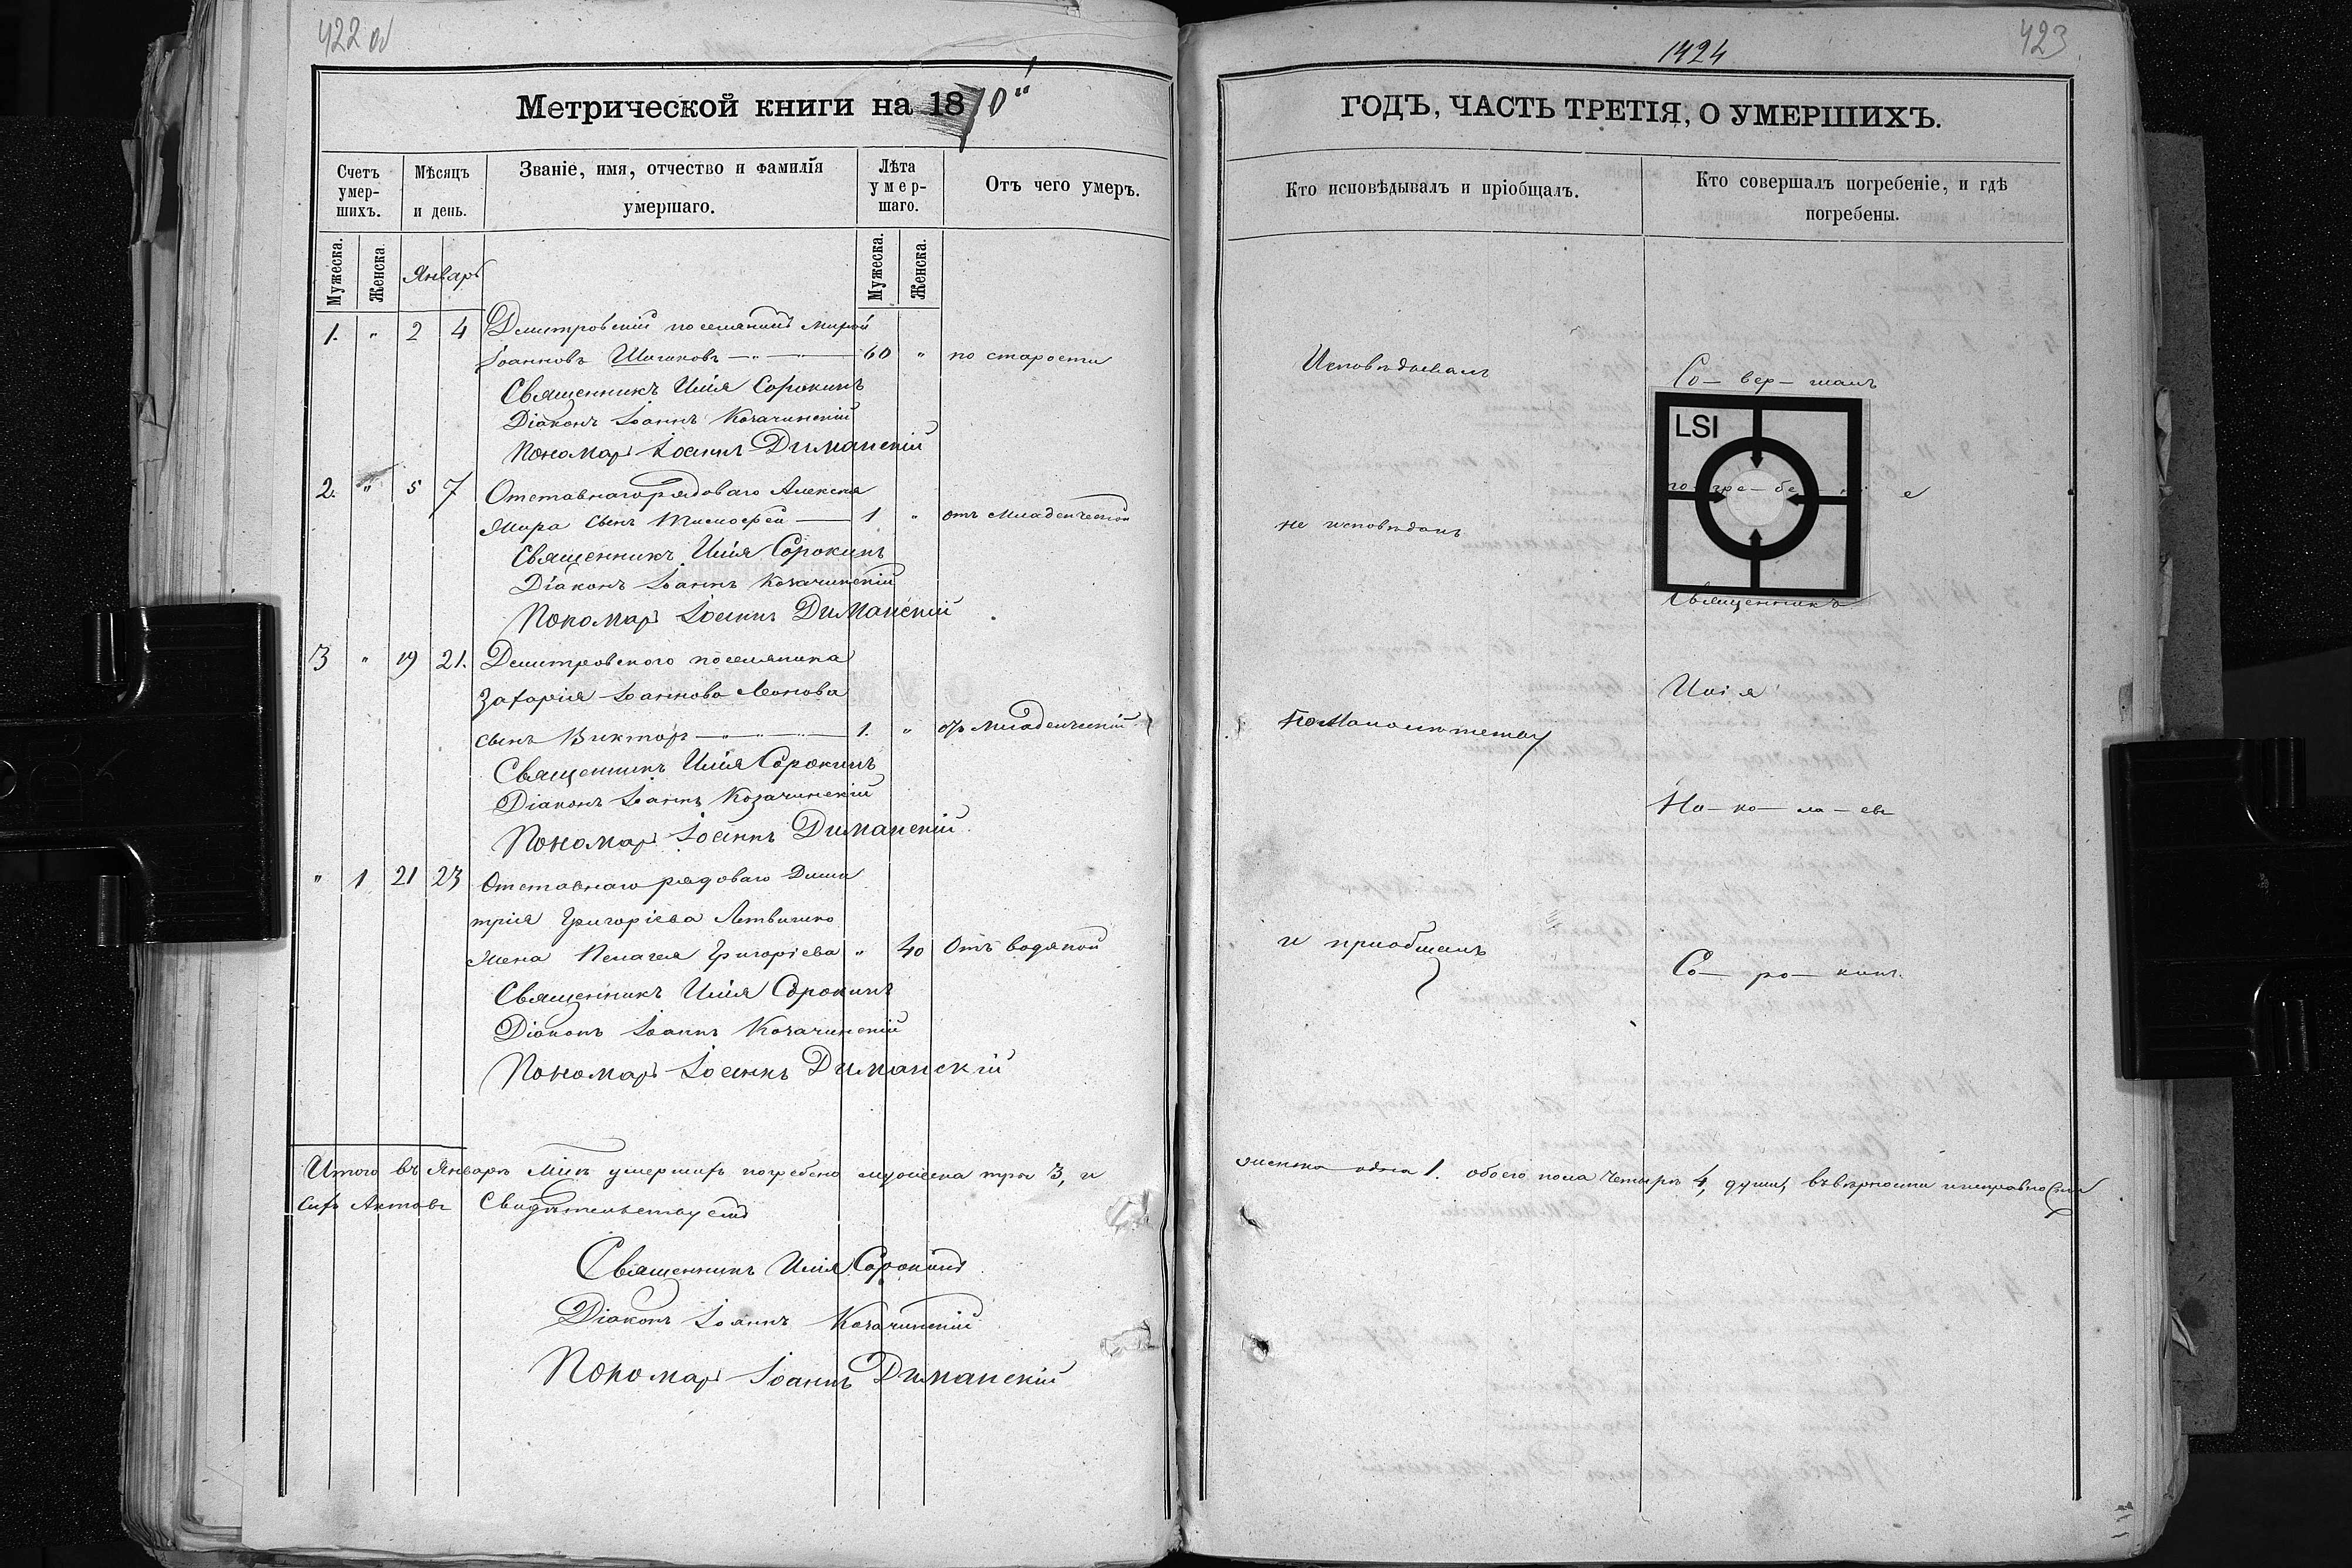 422 об
Метрической книги на 1870"
Счетъ умер-шихъ.
Мѣсяцъ и день.
Званіе, имя, отчество и фамилія умершаго.
Лѣта умер-шаго.
Отъ чего умеръ.
Мужеска.
Женска
Январь
Мужеска.
Женска.
1. " 2 4 Дмитровскій поселянинъ Мирой
Іоанновъ Шишковъ 60 " по старости
Священникъ Илія Сорокинъ
Діаконъ Іоаннъ Козачинскій
Пономарь Іоаннъ Диманскій
2. " 5 7 Отставнаго рядоваго Алексея
Мира сынъ Тимофей 1 " отъ младенческой
Священникъ Илія Сорокинъ
Діаконъ Іоаннъ Козачинскій
Пономарь Іоаннъ Диманскій
3 " 19 21. Дмитровского поселянина
Захарія Іоаннова Леонова
сынъ Викторъ 1. " отъ младенческій
Священникъ Илія Сорокинъ
Діаконъ Іоаннъ Козачинскій
Пономарь Іоаннъ Диманскій
" 1 21 23 Отставнаго рядоваго Дими
трія Григоріева Литвинко
жена Пелагея Григоріева " 40 Отъ водяной
Священникъ Илія Сорокинъ
Діаконъ Іоаннъ Козачинскій
Пономарь Іоаннъ Диманскій
Итого въ Январѣ м-цѣ умершихъ погребено мужеска три 3, и
сихъ Актовъ Свидѣтельствуемъ
Священникъ Илія Сорокинъ
Діаконъ Іоаннъ Козачинскій
Пономарь Іоаннъ Диманскій
1424
423
ГОДЪ, ЧАСТЬ ТРЕТІЯ, О УМЕРШИХЪ.
Кто исповѣдывалъ и пріобщалъ.
Кто совершалъ погребеніе, и гдѣ погребены.
Исповѣдывалъ
Со-вер-шалъ
LSI
по-гре-бе-ні е
не исповѣданъ
Священникъ
Илія
по малолѣтству
Со-ро-кинъ.
и приобщалъ
женска одна 1. обоего пола Четыре 4, души, въ вѣрности и исправности